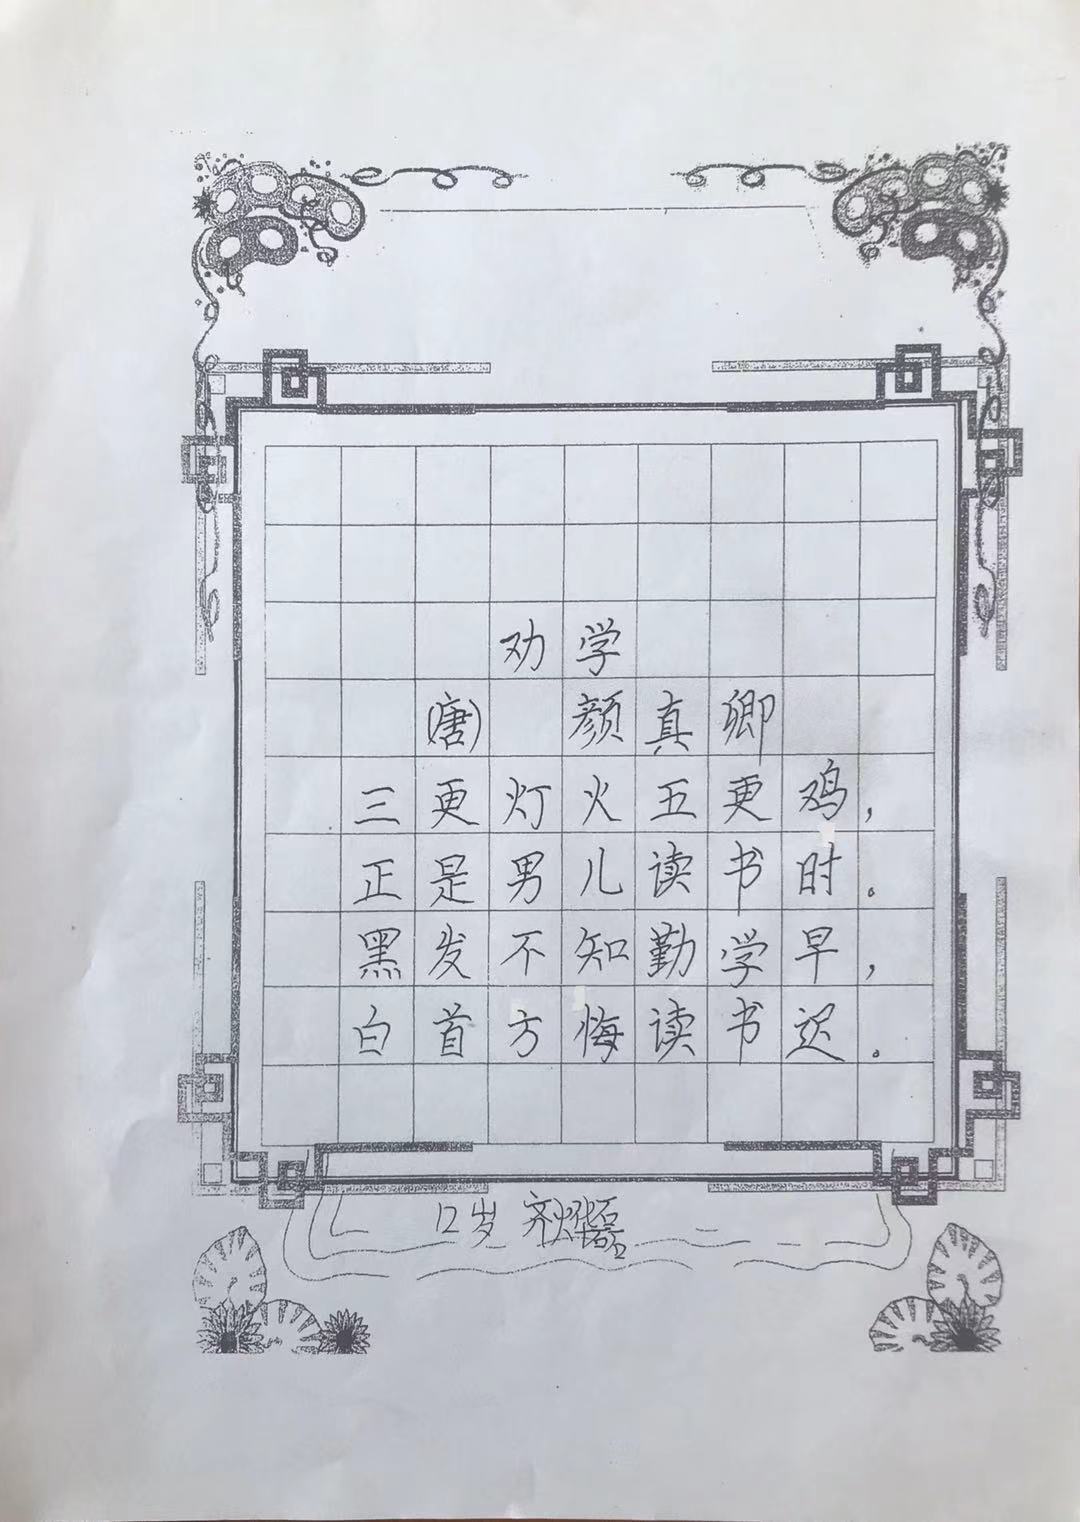 劝学
(唐) 颜真卿
三更灯火五更鸡，
正是男儿读书时。
黑发不知勤学早，
白首方悔读书迟。
12岁 齐烨磊